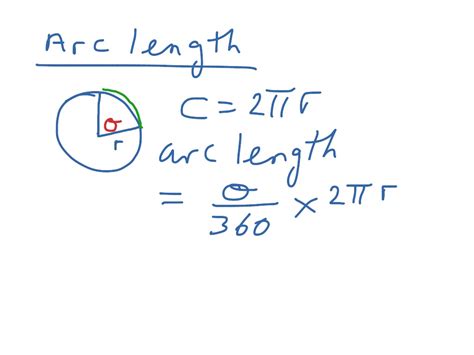 Arc length
θ
r
C = 2πr
arc length
= θ/360 × 2πr